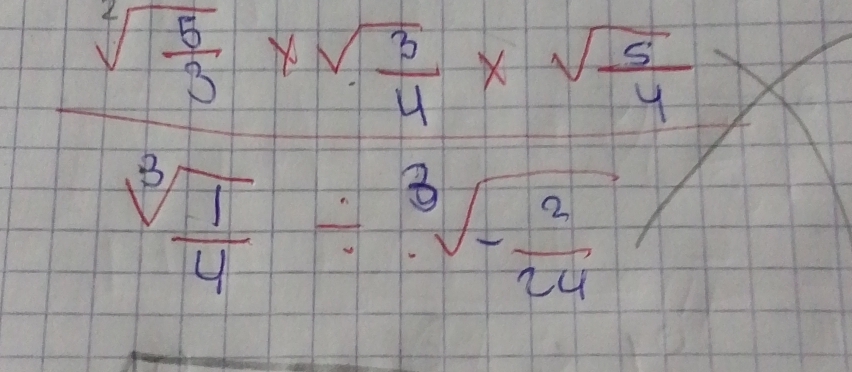 ²√(5/3) × √(3/4) × √(5/4)
³√(1/4) ÷ ³√(-2/24)